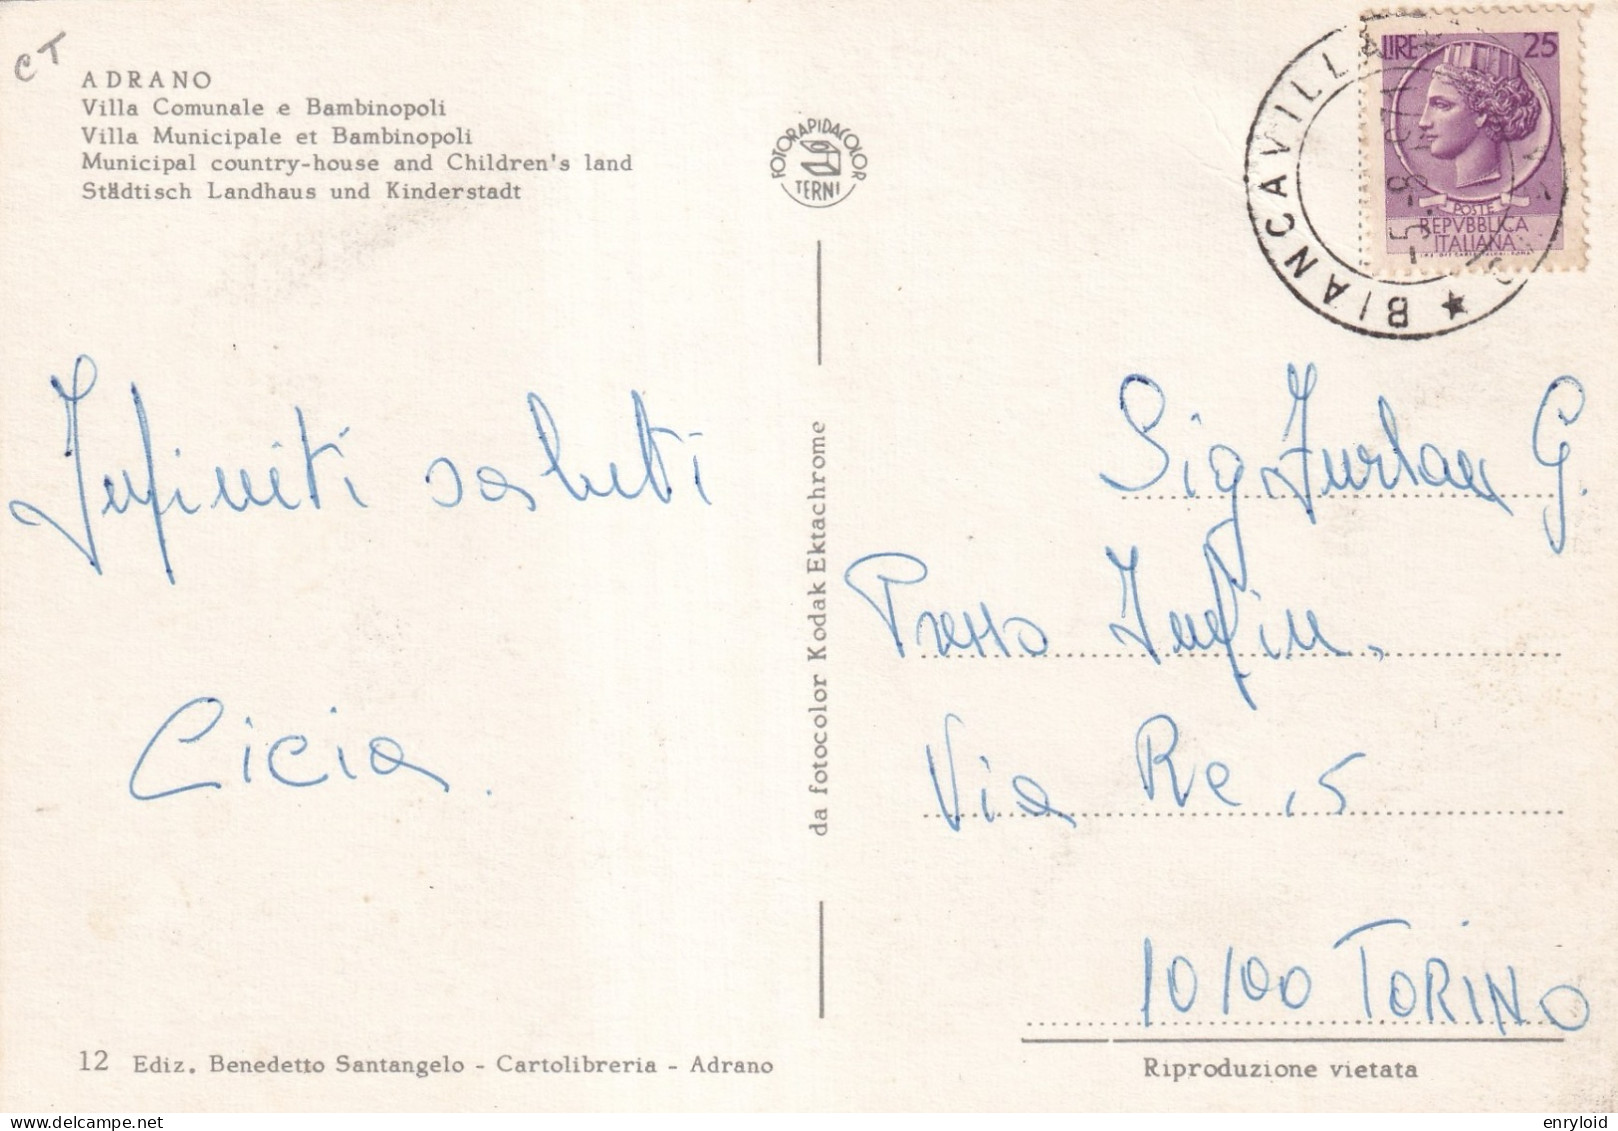 CT
ADRANO
Villa Comunale e Bambinopoli
Villa Municipale et Bambinopoli
Municipal country-house and Children's land
Städtisch Landhaus und Kinderstadt
FOTORAPIDACOLOR
TERNI
BIANCAVILLA
LIRE 25
POSTE
REPVBBLICA
ITALIANA
Infiniti saluti
Cicia.
da fotocolor Kodak Ektachrome
Sig Furlan G.
Presso
Via Re, 5
10100 TORINO
12 Ediz. Benedetto Santangelo - Cartolibreria - Adrano
Riproduzione vietata
enryloid